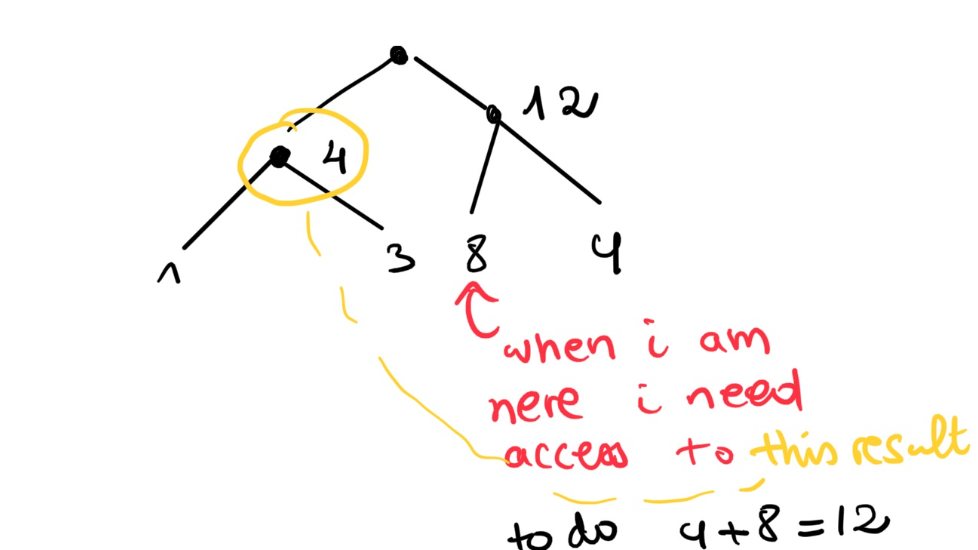 12
4
1 3 8 4
when i am
here i need
access to this result
to do 4+8=12